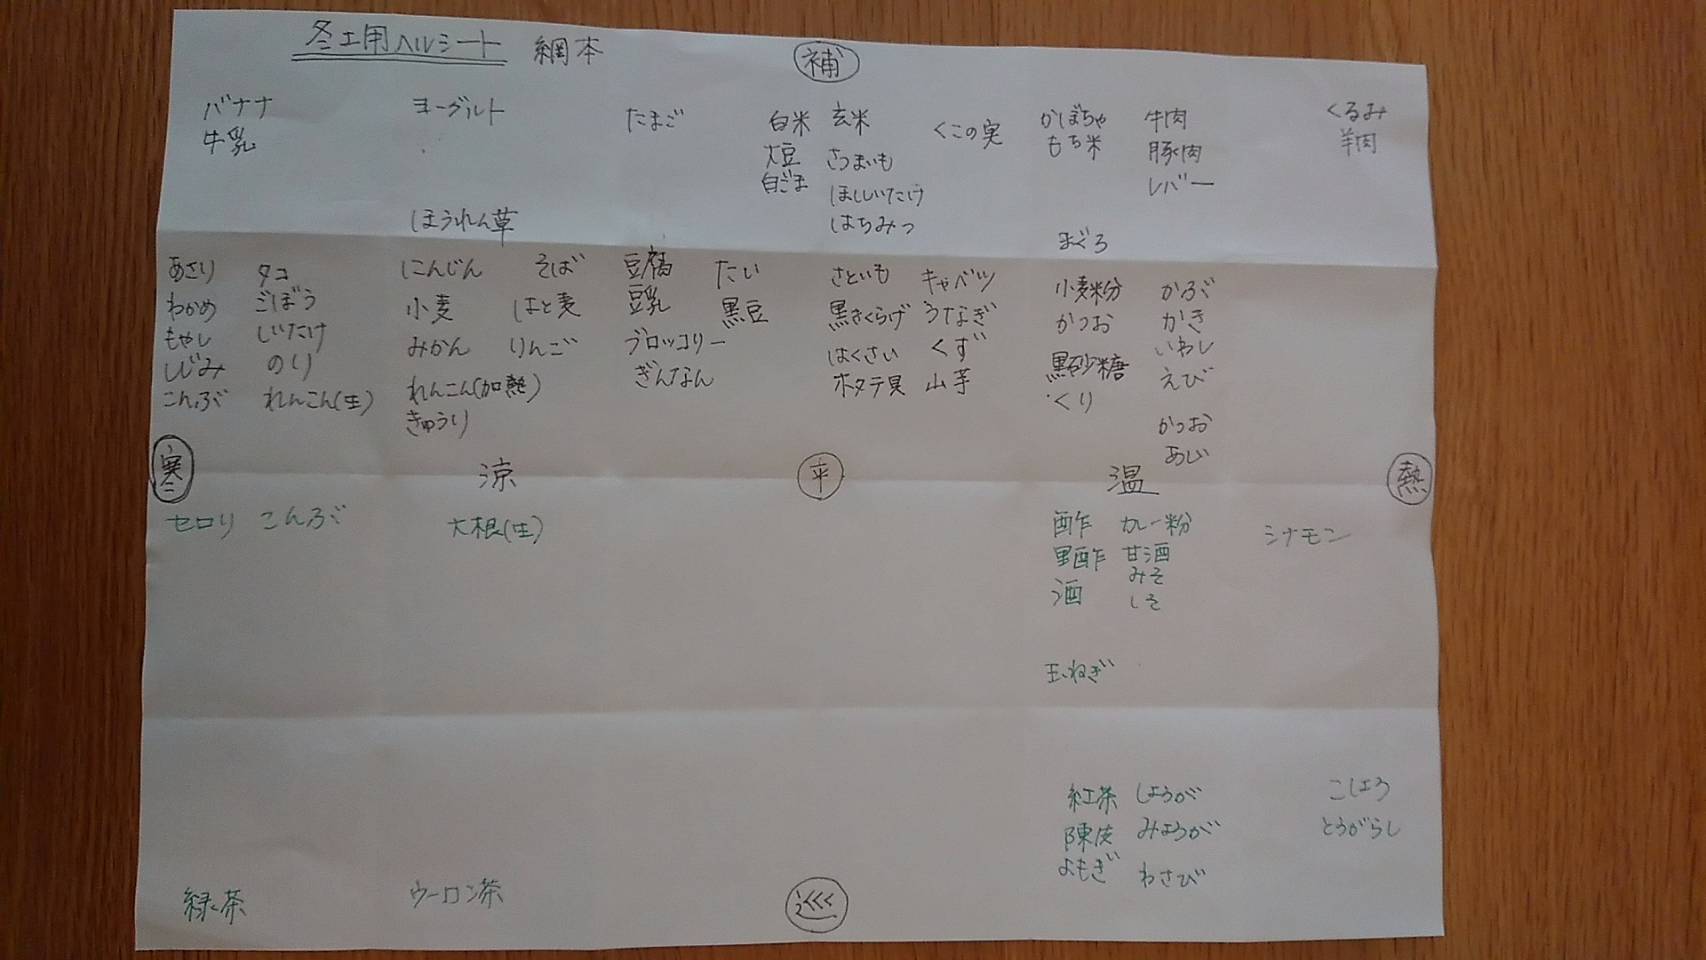 冬土用ヘルシート 綱本
補
バナナ ヨーグルト たまご 白米 玄米 くこの実 かぼちゃ 牛肉 くるみ
牛乳 大豆 さつまいも もち米 豚肉 羊肉
白ごま ほししいたけ レバー
ほうれん草 はちみつ
まぐろ
あさり タコ にんじん そば 豆腐 たい さといも キャベツ 小麦粉 かぶ
わかめ ごぼう 小麦 はと麦 豆乳 黒豆 黒きくらげ うなぎ かつお かき
もやし しいたけ みかん りんご ブロッコリー はくさい くず 黒砂糖 いわし
しじみ のり れんこん(加熱) ぎんなん ホタテ貝 山芋 くり えび
こんぶ れんこん(生) きゅうり かつお
あじ
寒 涼 平 温 熱
セロリ こんぶ 大根(生) 酢 カレー粉 シナモン
黒酢 甘酒
みそ
酒 しそ
玉ねぎ
紅茶 しょうが こしょう
陳皮 みょうが とうがらし
よもぎ わさび
緑茶 ウーロン茶 巡